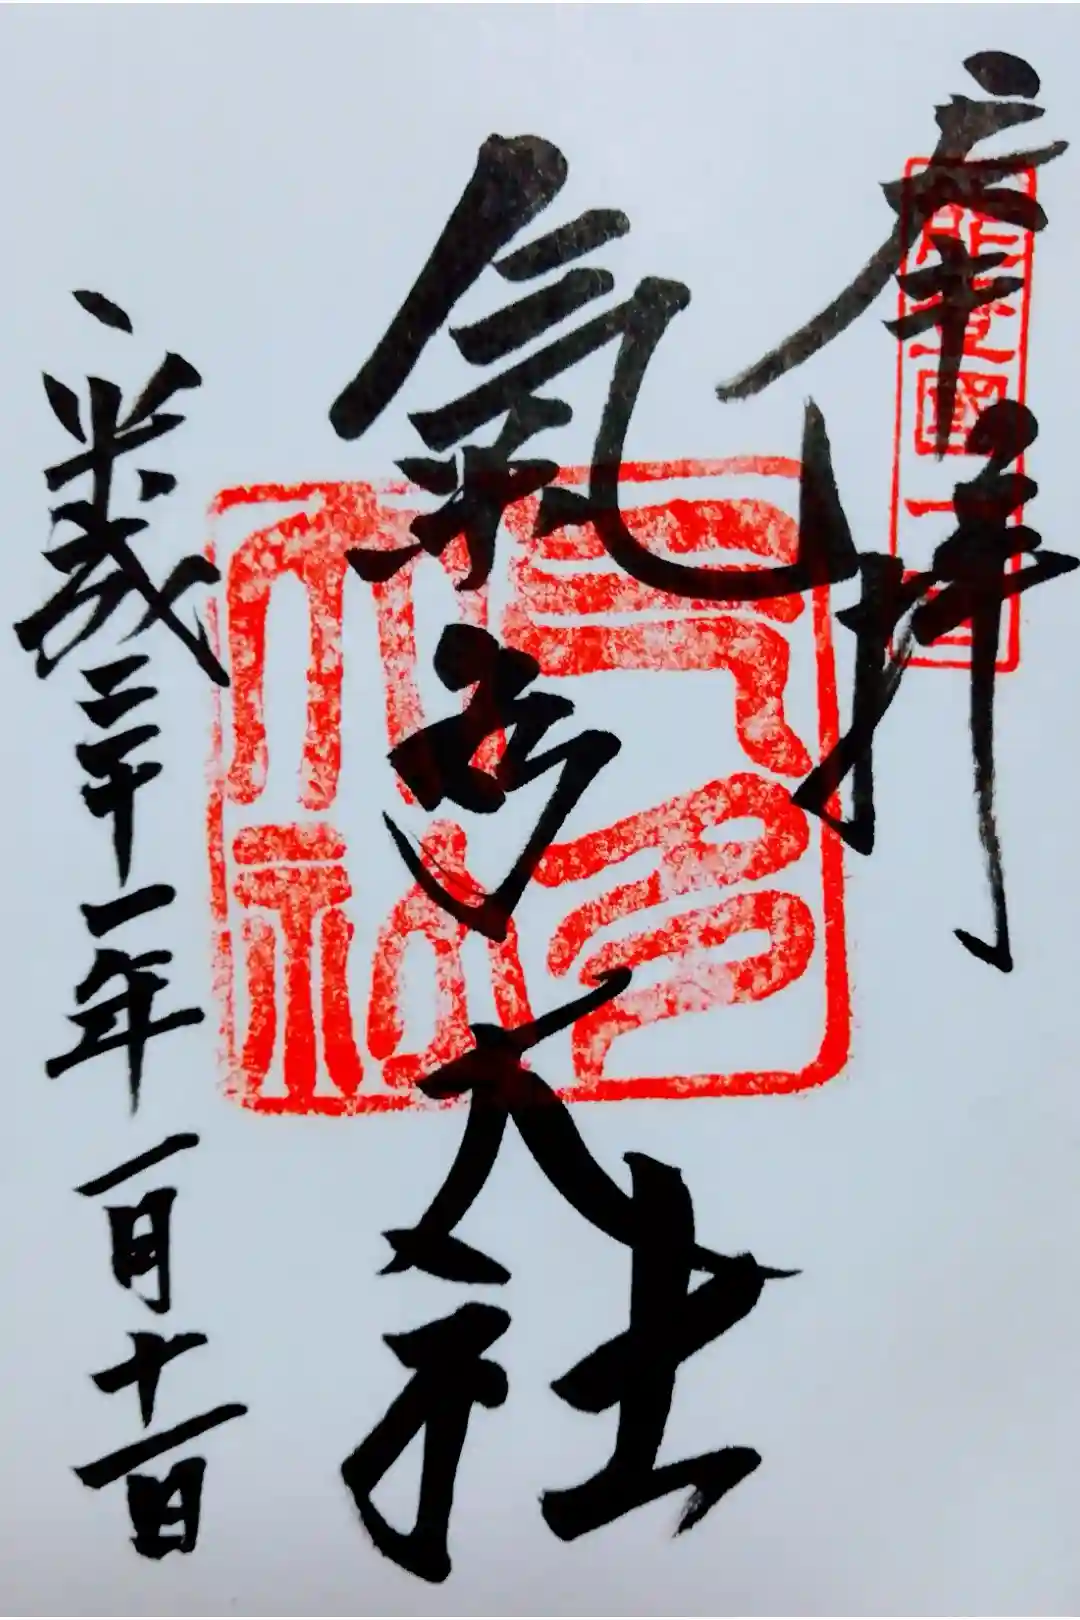 奉拝
能登國一宮
氣多大社
氣多
大社
平成三十一年一月十一日